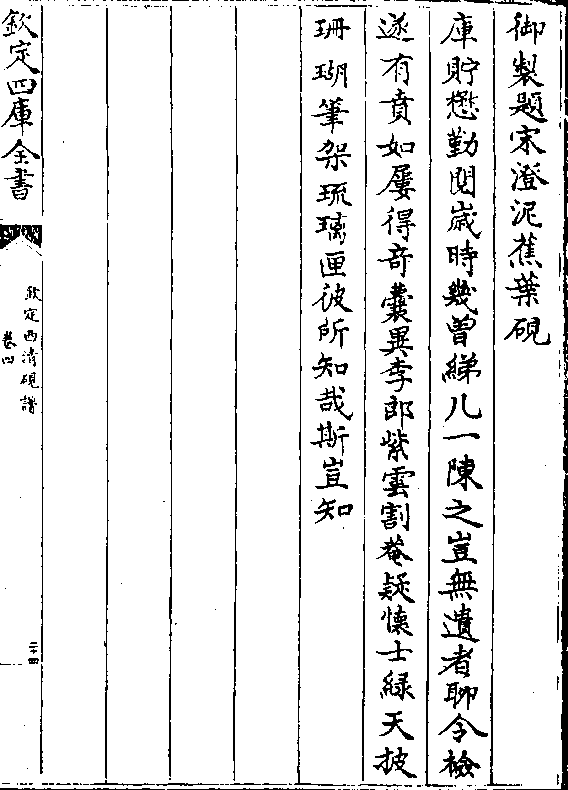 御製題宋澄泥蕉葉硯
庫貯懋勤閲歲時幾曾綈几一陳之豈無遺者聊令檢
遂有賁如屢得竒囊異李郎紫雲割菴疑懷士緑天披
珊瑚筆架琉璃匣彼所知哉斯豈知
欽定四庫全書
欽定西清硯譜
卷四
二十四